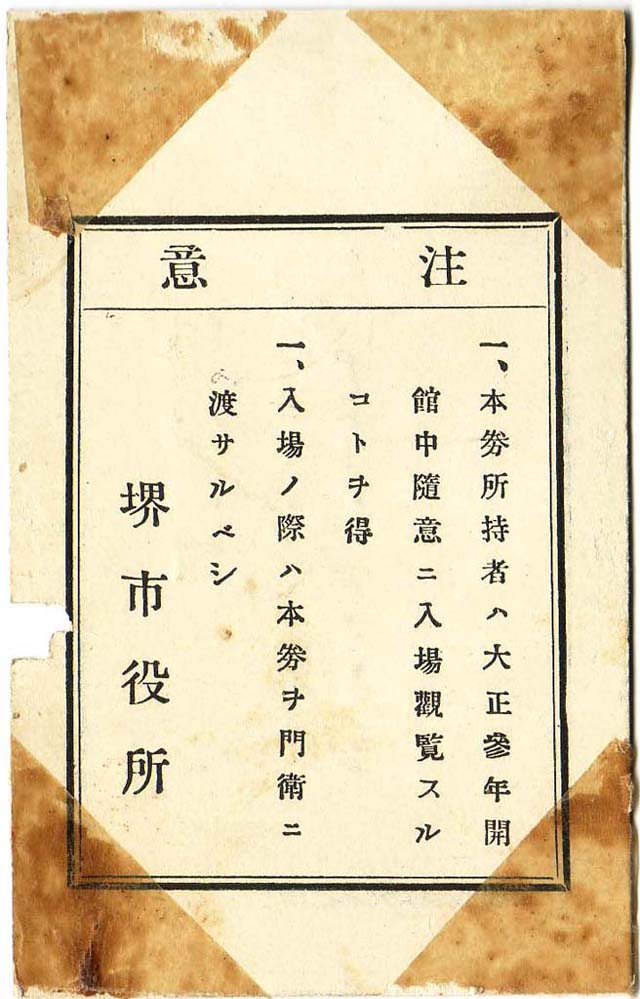 注意
一、本券所持者ハ大正參年開
館中隨意ニ入場觀覧スル
コトヲ得
一、入場ノ際ハ本券ヲ門衛ニ
渡サルベシ
堺市役所